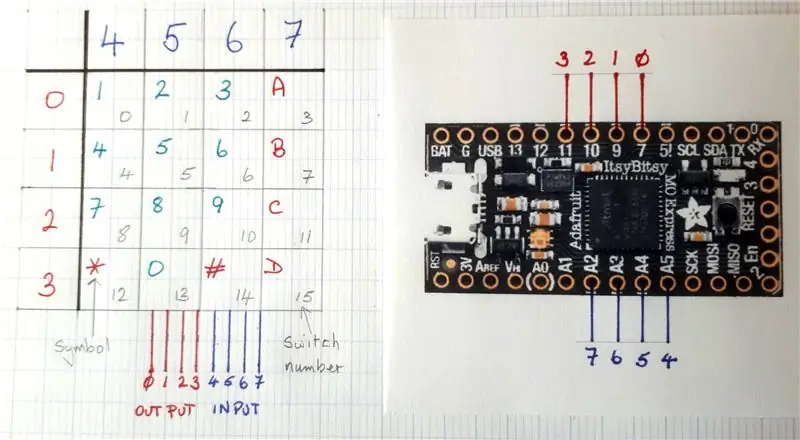 4 5 6 7
0 1 0 2 1 3 2 A 3
1 4 4 5 5 6 6 B 7
2 7 8 8 9 9 10 C 11
3 * 12 0 13 # 14 D 15
Symbol
Switch number
0 1 2 3 4 5 6 7
OUTPUT INPUT
3 2 1 0
BAT G USB 13 12 11 10 9 7 5! SCL SDA TX 1 0 RX
ItsyBitsy
Adafruit
M0 Express
4 3 RESET 2 En
RST 3V AREF VH (A0) A1 A2 A3 A4 A5 SCK MOSI MISO
7 6 5 4